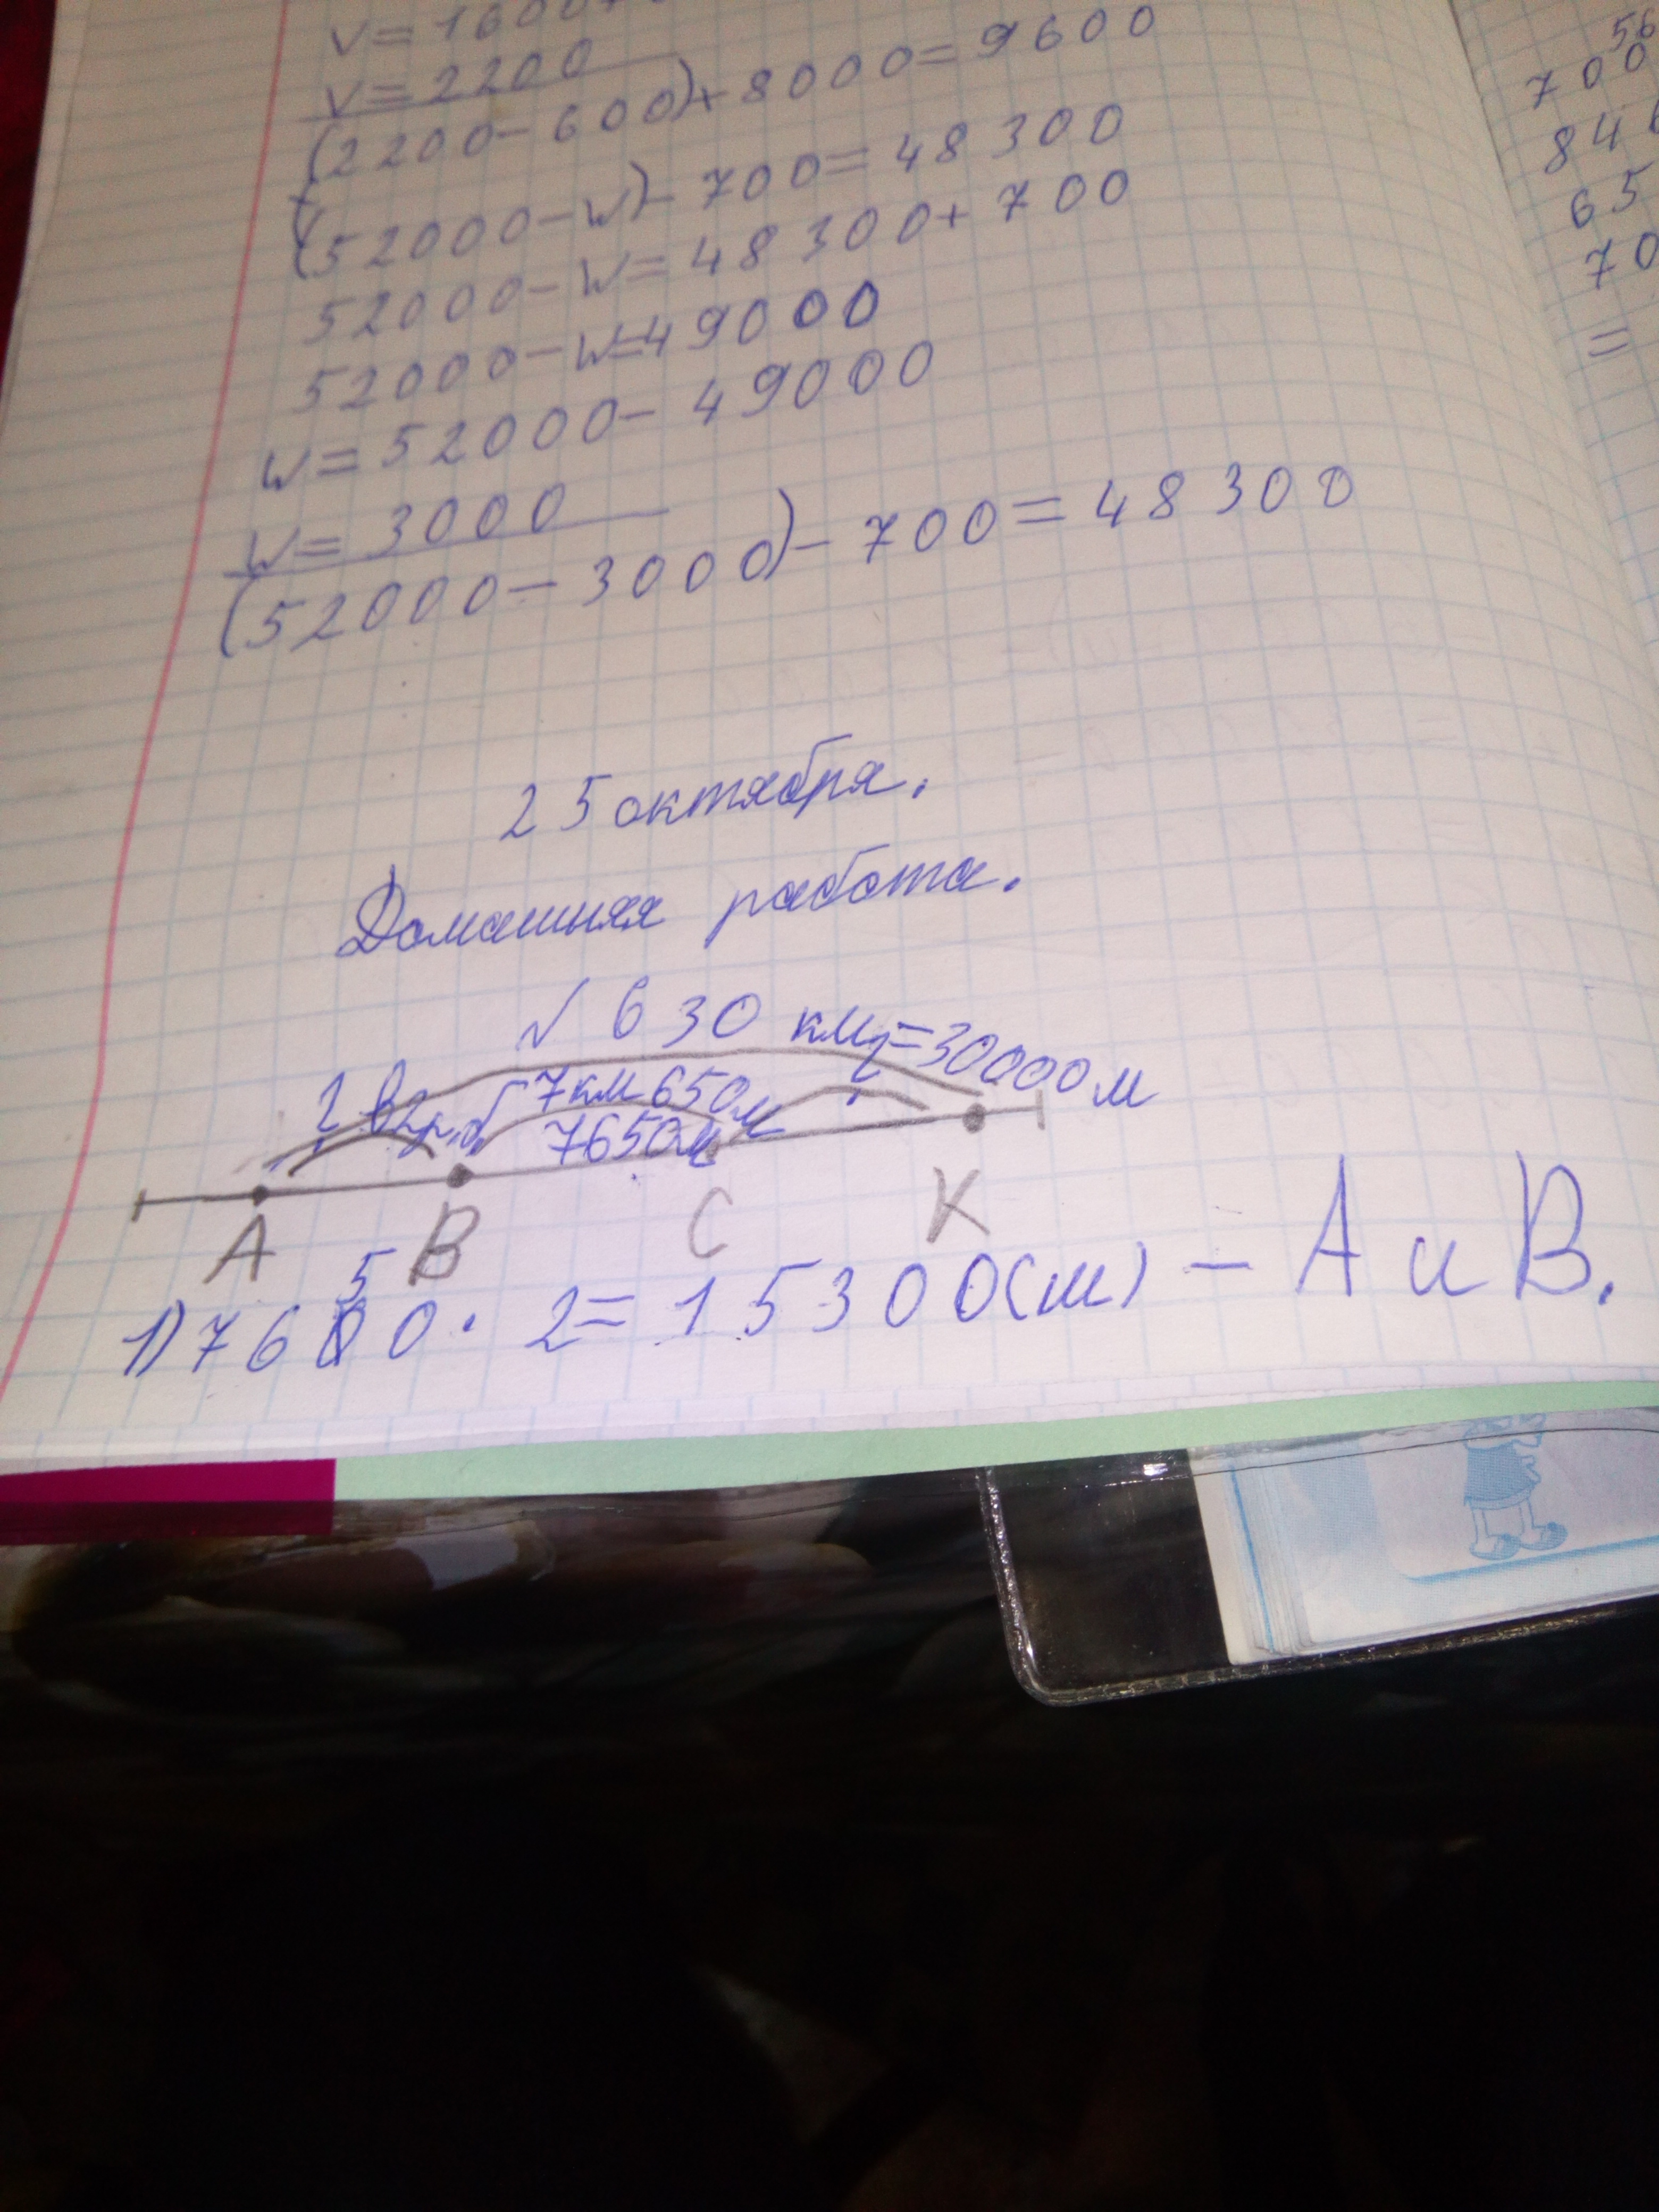 v=1600+
v=2200
(2200-600)+8000=9600
(52000-w)-700=48300
52000-w=48300+700
52000-w=49000
w=52000-49000
w=3000
(52000-3000)-700=48300
25 октября.
Домашняя работа.
√ 6 30 км=30000м
? в 2 р. б 7км 650м ?
7650м
A B C K
1) 7650 · 2=15300(м) - А и В.
56
700
84
65
70
=